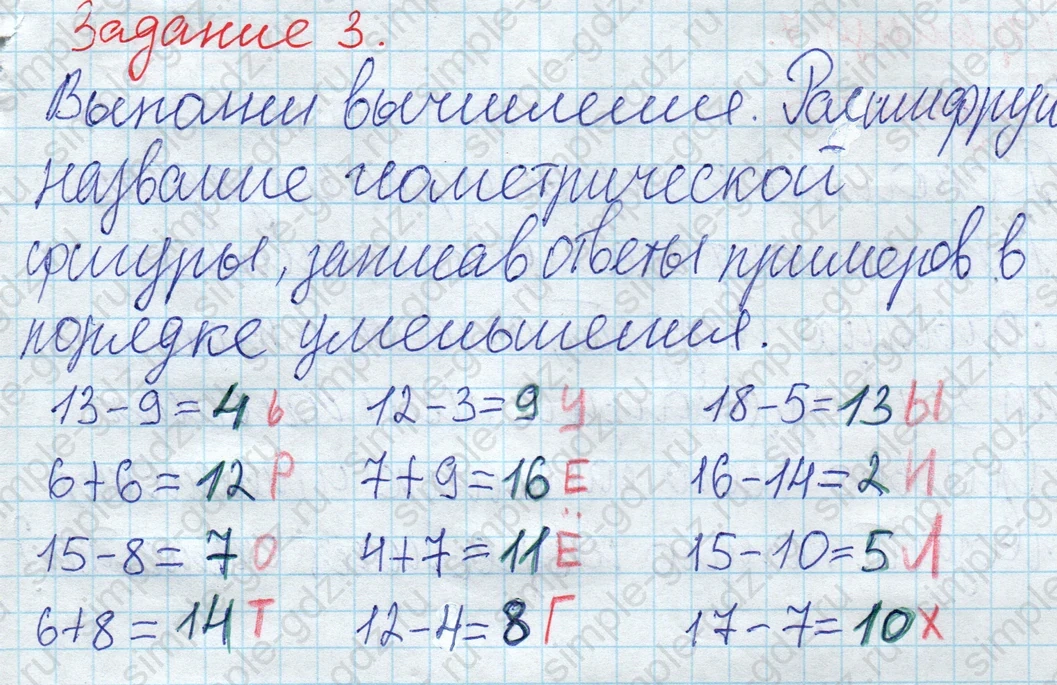 Задание 3.
Выполни вычисления. Расшифруй
название геометрической
фигуры, записав ответы примеров в
порядке уменьшения.
13-9=4 ь 12-3=9 У 18-5=13 Ы
6+6=12 Р 7+9=16 Е 16-14=2 И
15-8=7 О 4+7=11 Ё 15-10=5 Л
6+8=14 Т 12-4=8 Г 17-7=10 Х